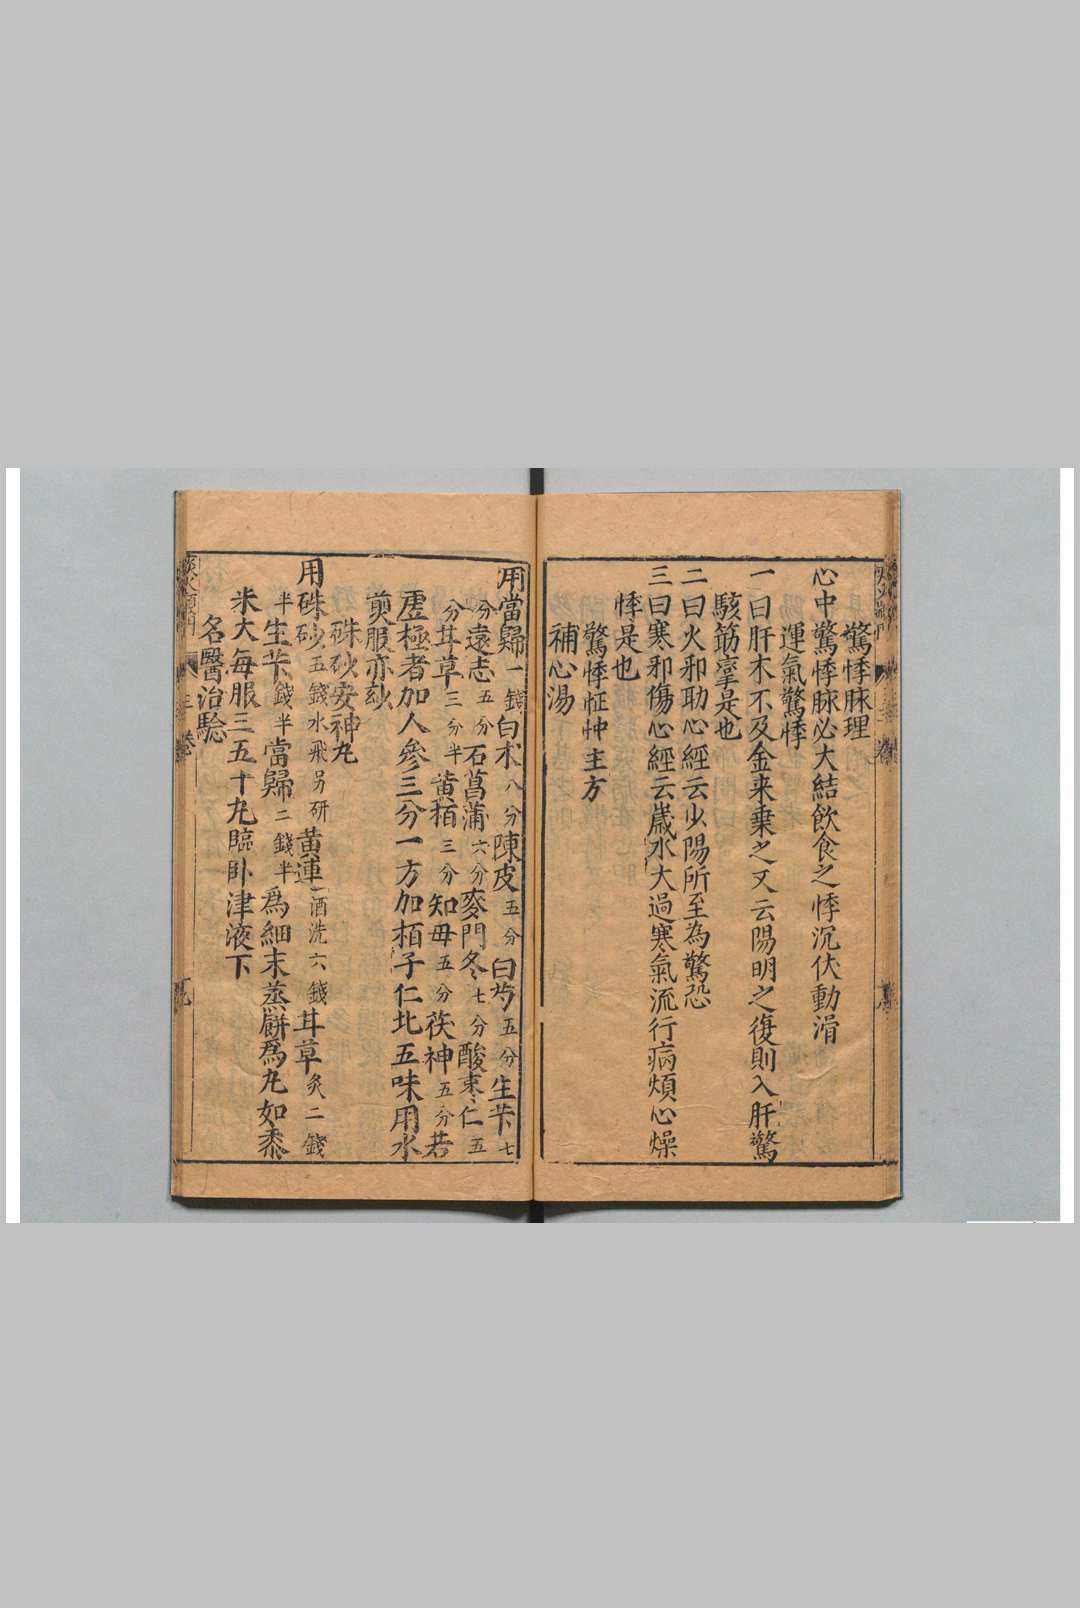 驚悸脉理
心中驚悸脉必大結飲食之悸沉伏動滑
運氣驚悸
一曰肝木不及金来乗之又云陽明之復則入肝驚
駭筋攣是也
二曰火邪助心經云少陽所至為驚恐
三曰寒邪傷心經云歲水大過寒氣流行病煩心燥
悸是也
驚悸怔忡主方
補心湯
用當歸一錢白术八分陳皮五分白芍五分生芐七
分遠志五分石菖蒲六分麥門冬七分酸枣仁五
分甘草三分半黄栢三分知毋五分茯神五分若
虛極者加人參三分一方加栢子仁北五味用水
煎服亦効
硃砂安神丸
用硃砂五錢水飛另研黄連酒洗六錢甘草炙二錢
半生芐錢半當歸二錢半爲細末蒸餅爲丸如黍
米大每服三五十丸臨卧津液下
名醫治騐
三卷